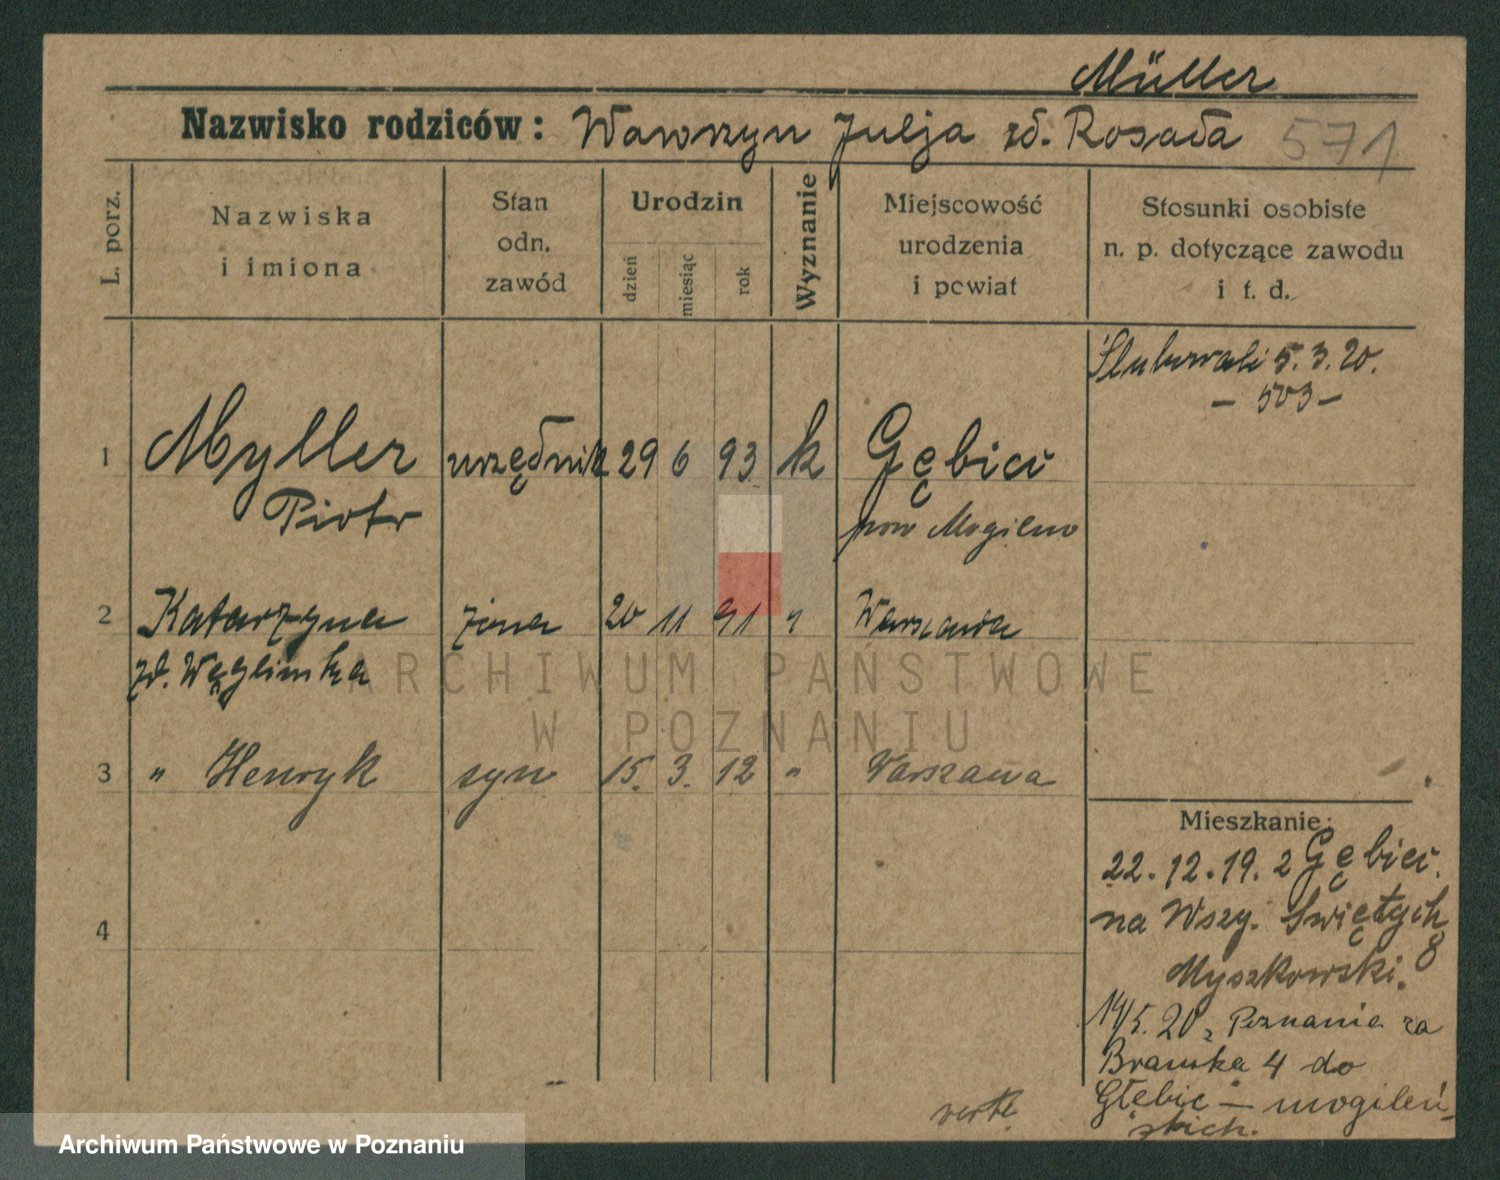 Müller
Nazwisko rodziców: Wawrzyn Julja zd. Rosada 571
L. porz.
Nazwiska i imiona
Stan odn. zawód
Urodzin
dzień miesiąc rok
Wyznanie
Miejscowość urodzenia i powiat
Stosunki osobiste n. p. dotyczące zawodu i t. d.
Ślubowali 5.3.20.
- 503 -
1 Myller urzędnik 29 6 93 k Gębice
Piotr pow Mogilno
2 Katarzyna żona 20 11 91 " Warszawa
zd. Węglińska
3 " Henryk syn 15. 3. 12 " Warszawa
4
Mieszkanie:
22.12.19. z Gębic.
na Wszy. Świętych
8
Myszkowski.
14/5.20 z Poznania za
Bramka 4 do
Głębic — mogileń
skich.
verte
ARCHIWUM PAŃSTWOWE
W POZNANIU
Archiwum Państwowe w Poznaniu